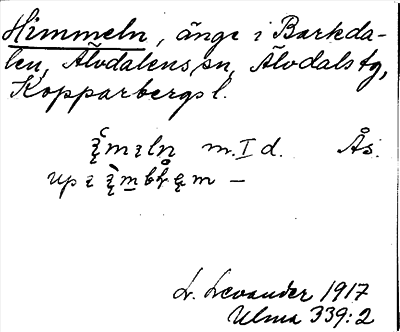 Himmeln, änge i Barkda-
len, Älvdalens sn, Älvdals tg,
Kopparbergs l.
m. I d. Ås.
L. Levander 1917
Ulma 339:2